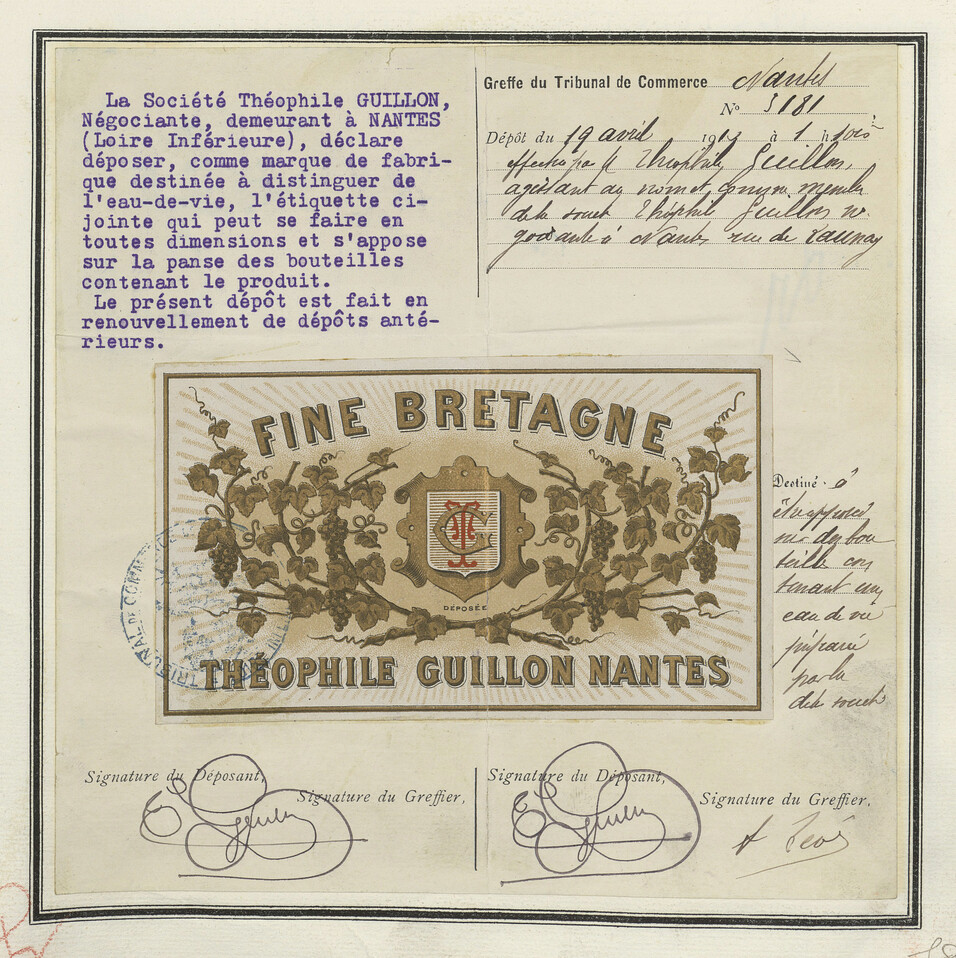 La Société Théophile GUILLON,
Négociante, demeurant à NANTES
(Loire Inférieure), déclare
déposer, comme marque de fabri-
que destinée à distinguer de
l'eau-de-vie, l'étiquette ci-
jointe qui peut se faire en
toutes dimensions et s'appose
sur la panse des bouteilles
contenant le produit.
Le présent dépôt est fait en
renouvellement de dépôts anté-
rieurs.
Greffe du Tribunal de Commerce Nantes
N° 5181
Dépôt du 19 avril 191 à 1 h
effectué par Théophile Guillon,
agissant au nom et comme membre
de la Théophile Guillon né-
gociante à Nantes rue de Launay
FINE BRETAGNE
DÉPOSÉE
THÉOPHILE GUILLON NANTES
TRIBUNAL DE COMMERCE
Destiné à
être apposé
sur des bou
teilles con
tenant une
eau de vie
préparée
par la
dite société
Signature du Déposant,
Signature du Greffier,
Signature du Déposant,
Signature du Greffier,